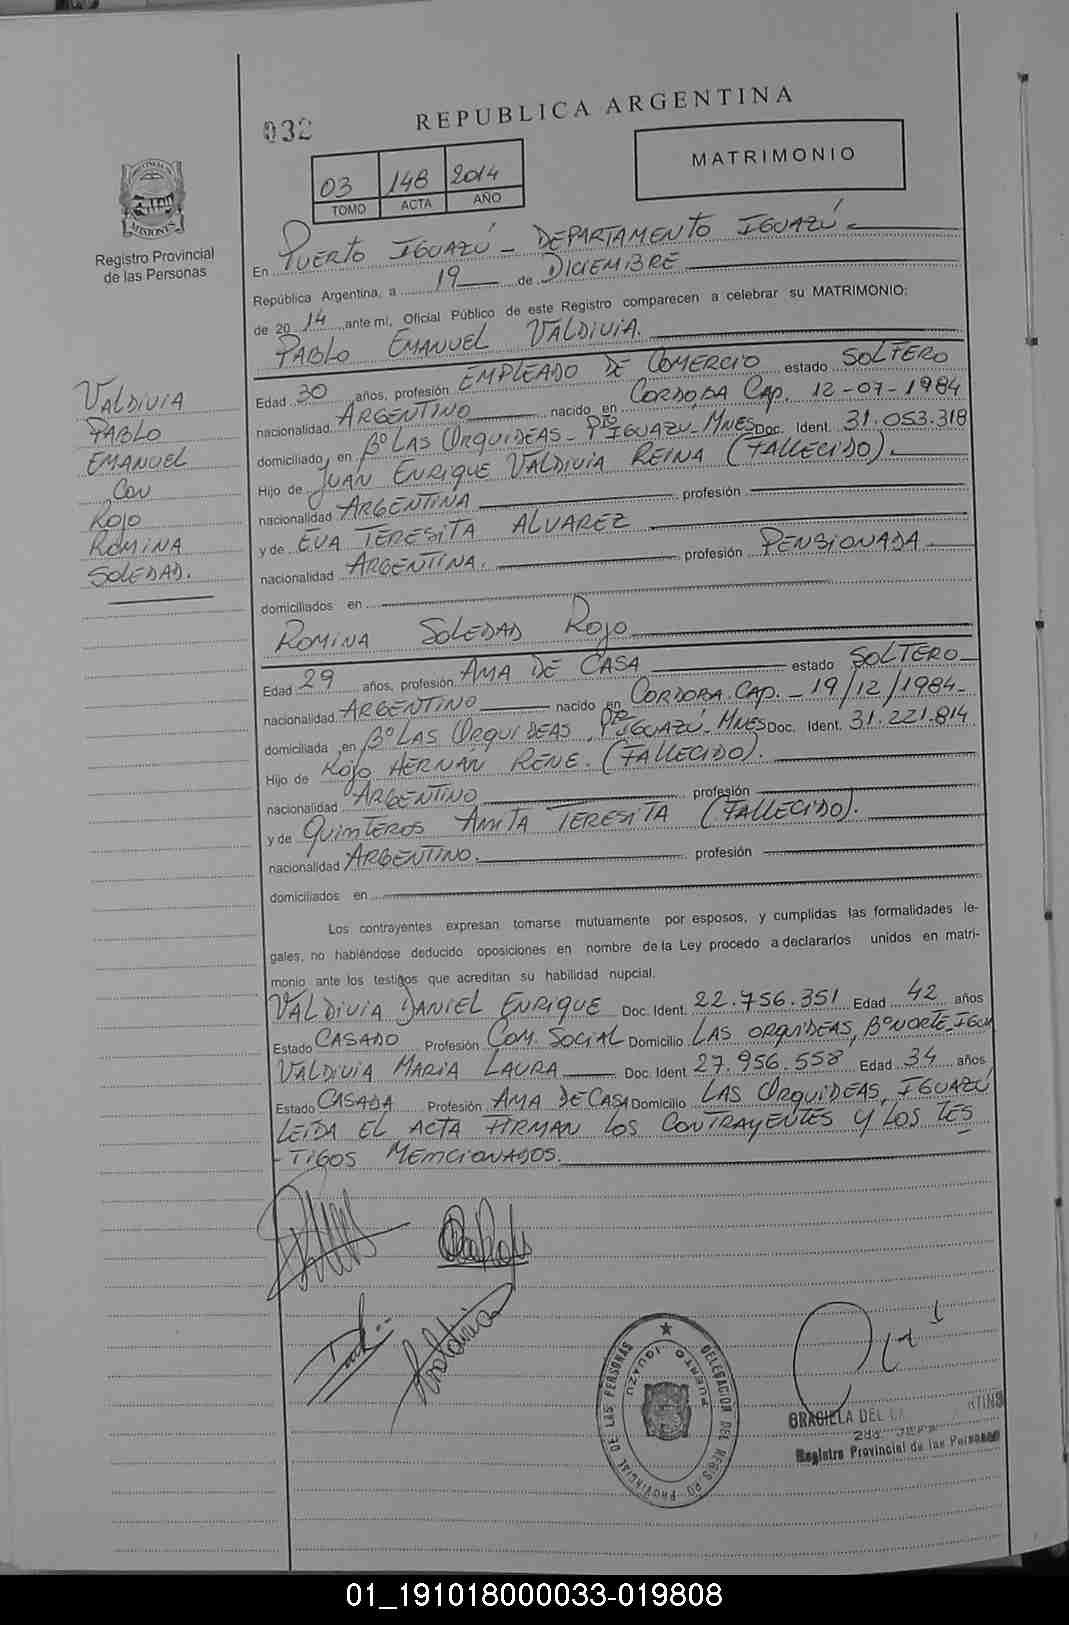 032
REPUBLICA ARGENTINA
MATRIMONIO
03 148 2014
TOMO ACTA AÑO
MISIONES
Registro Provincial
de las Personas
En PUERTO IGUAZÚ - DEPARTAMENTO IGUAZÚ
República Argentina, a 19 de DICIEMBRE
de 20 14 ante mi, Oficial Público de este Registro comparecen a celebrar su MATRIMONIO:
PABLO EMANUEL VALDIVIA.
Edad 30 años, profesión EMPLEADO DE COMERCIO estado SOLTERO
nacionalidad ARGENTINO nacido en CORDOBA CAP. 12-07-1984
domiciliado en Bº LAS ORQUIDEAS - PTO IGUAZU - MNES Doc. Ident. 31.053.318
Hijo de JUAN ENRIQUE VALDIVIA REINA (FALLECIDO).
nacionalidad ARGENTINA profesión
y de EVA TERESITA ALVAREZ
nacionalidad ARGENTINA. profesión PENSIONADA
domiciliados en
ROMINA SOLEDAD ROJO
Edad 29 años, profesión AMA DE CASA estado SOLTERO
nacionalidad ARGENTINO nacido en CORDOBA CAP. - 19/12/1984-
domiciliada en Bº LAS ORQUIDEAS, PTO IGUAZÚ - MNES Doc. Ident. 31.221.814
Hijo de ROJO HERNÁN RENE. (FALLECIDO).
nacionalidad ARGENTINO profesión
y de QUINTEROS ANITA TERESITA (FALLECIDO).
nacionalidad ARGENTINO. profesión
domiciliados en
Los contrayentes expresan tomarse mutuamente por esposos, y cumplidas las formalidades le-
gales, no habiéndose deducido oposiciones en nombre de la Ley procedo a declararlos unidos en matri-
monio ante los testigos que acreditan su habilidad nupcial.
VALDIVIA DANIEL ENRIQUE Doc. Ident. 22.756.351 Edad 42 años
Estado CASADO Profesión COM. SOCIAL Domicilio LAS ORQUIDEAS, Bº NORTE, IGUA
VALDIVIA MARIA LAURA Doc. Ident. 27.956.558 Edad 34 años
Estado CASADA Profesión AMA DE CASA Domicilio LAS ORQUIDEAS, IGUAZÚ
LEIDA EL ACTA FIRMAN LOS CONTRAYENTES Y LOS TES
-TIGOS MENCIONADOS.
VALDIVIA
PABLO
EMANUEL
CON
ROJO
ROMINA
SOLEDAD.
DELEGACION DEL REGISTRO PROVINCIAL DE LAS PERSONAS
PUERTO IGUAZU
GRACIELA DEL
2do. JEFE
Registro Provincial de las Personas
01_191018000033-019808